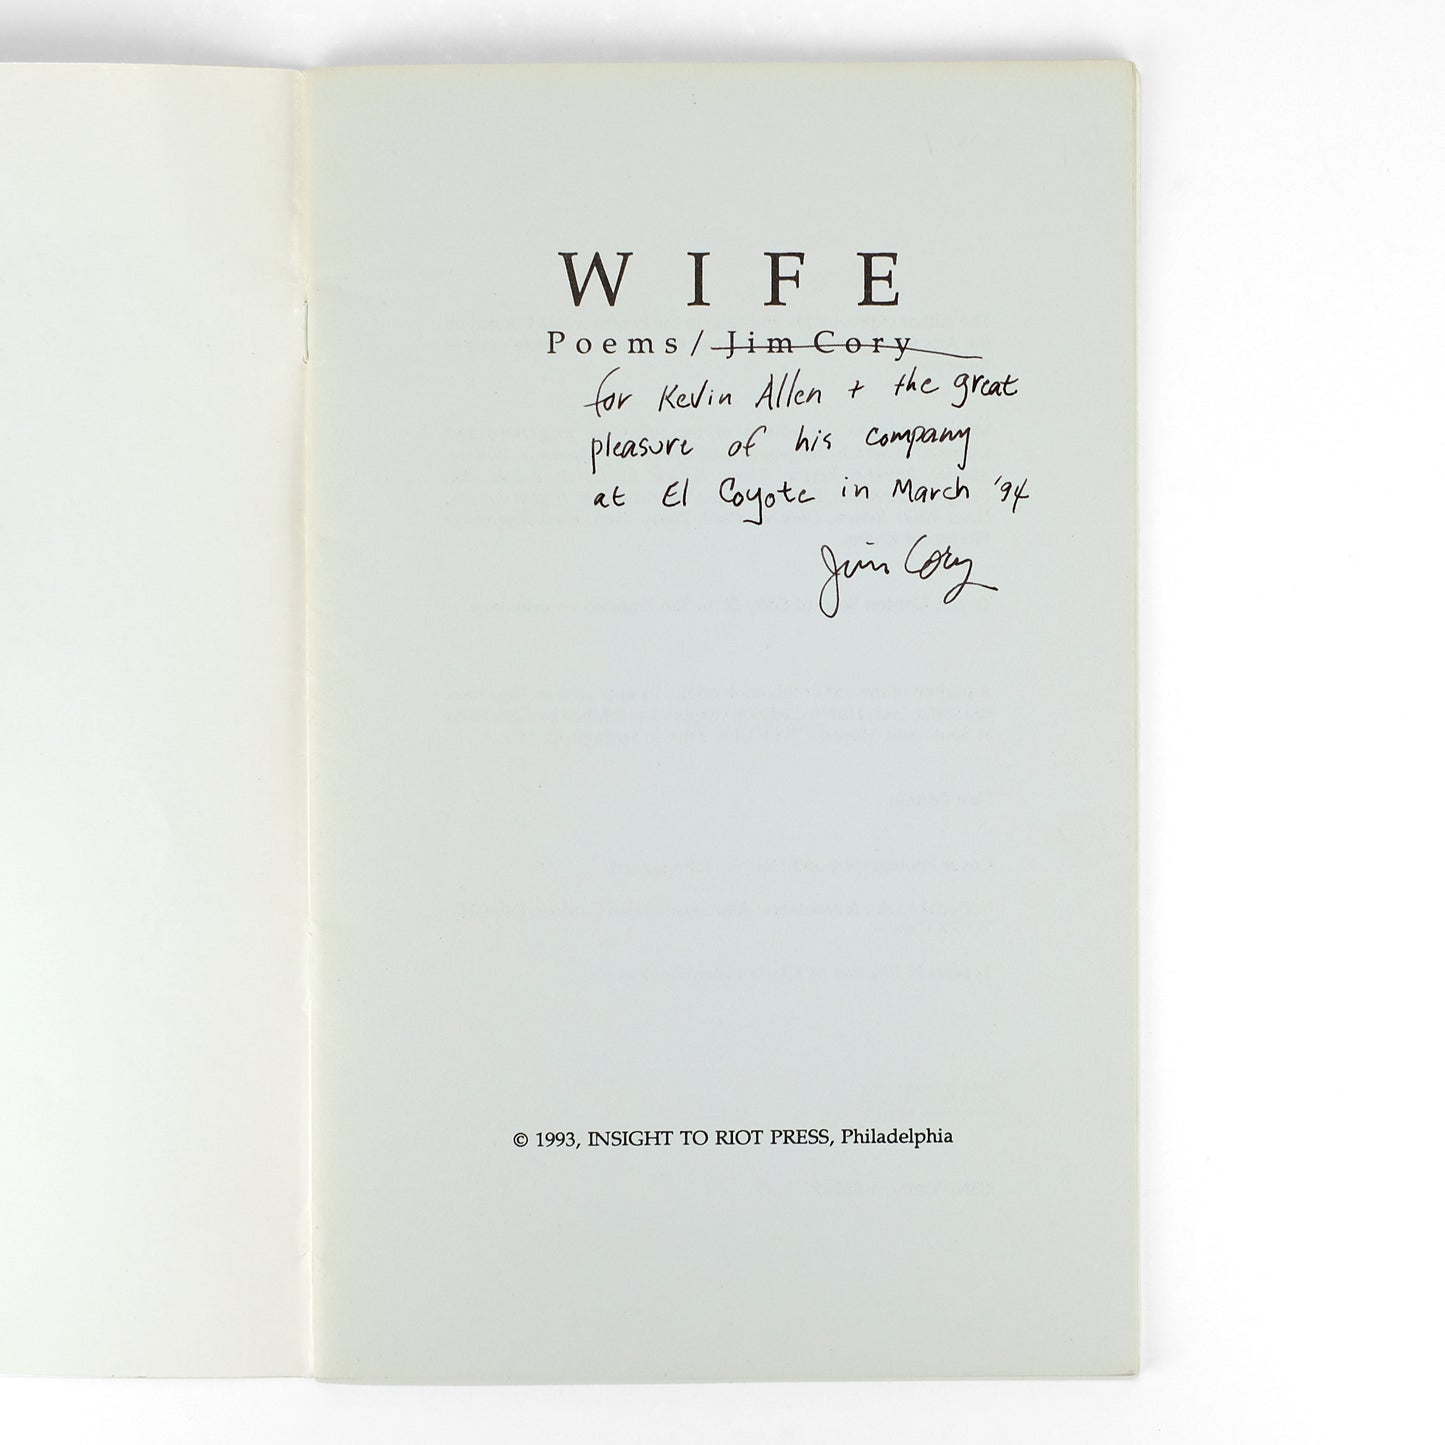 WIFE
Poems/Jim Cory
for Kevin Allen + the great
pleasure of his company
at El Coyote in March '94
Jim Cory
© 1993, INSIGHT TO RIOT PRESS, Philadelphia